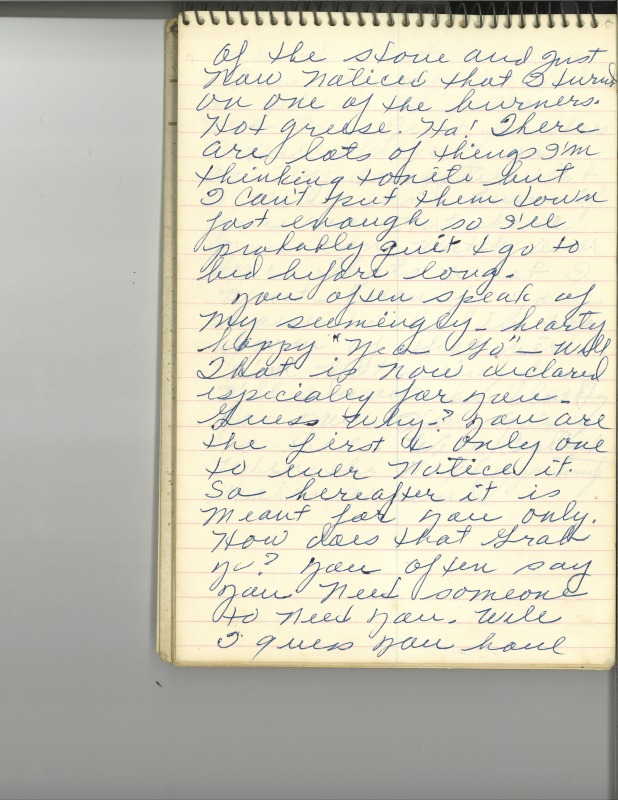 of the stove and just
now noticed that I turned
on one of the burners.
Hot grease. Ha! There
are lots of things I'm
thinking tonite but
I can't put them down
fast enough so I'll
probably quit & go to
bed before long.
You often speak of
my seemingly - hearty
happy "Yea Yo" - Well
That is now declared
especially for you -
Guess Why-? You are
the first & only one
to ever notice it.
So hereafter it is
meant for you only.
How does that Grab
ya? You often say
you need someone
to need you. Well
I guess you have